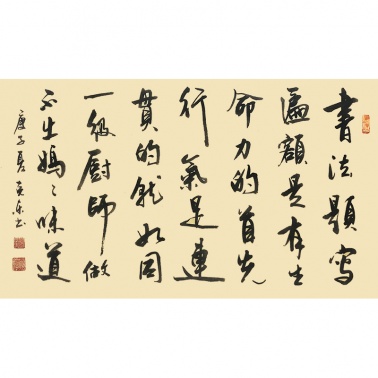 書法題寫
匾額是有生
命力的首先
行氣是連
貫的就如同
一級廚師做
不出媽々味道
庚子夏